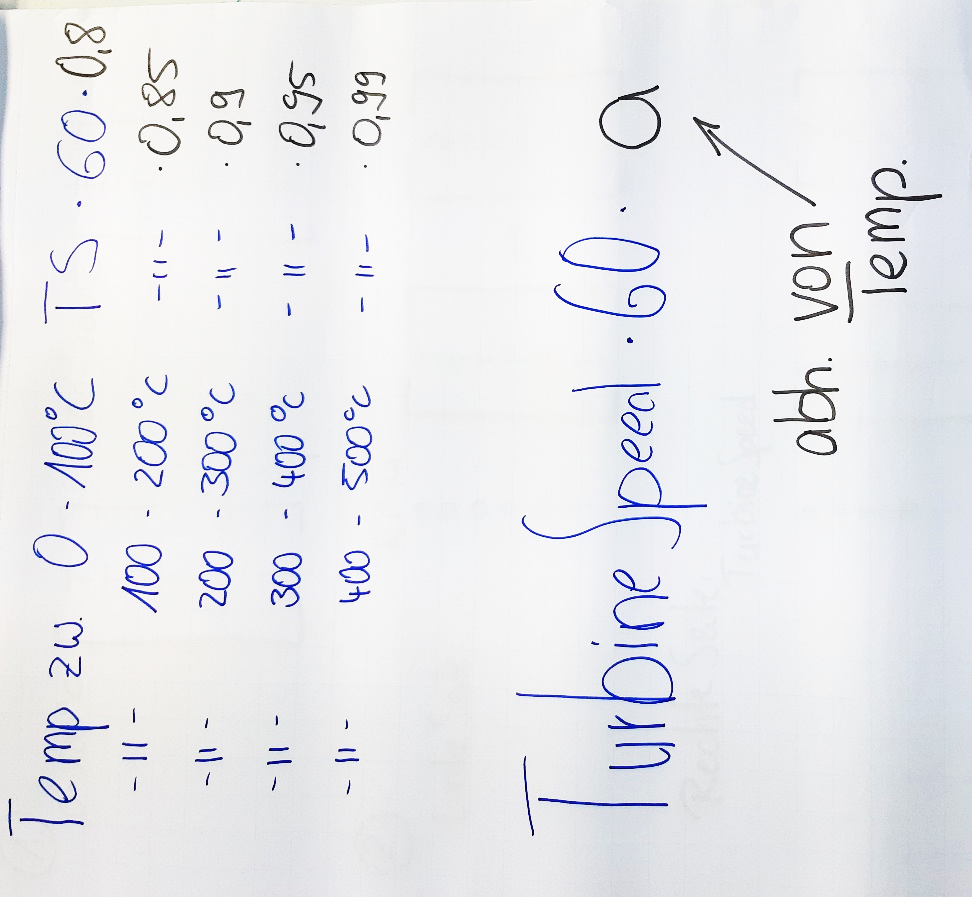 Temp zw. 0 - 100°C TS · 60 · 0,8
-||- 100 - 200°C -|||- · 0,85
-||- 200 - 300°C -||- · 0,9
-||- 300 - 400°C -||- · 0,95
-||- 400 - 500°C -||- · 0,99
Turbine Speed · 60 · a
abh. von
Temp.